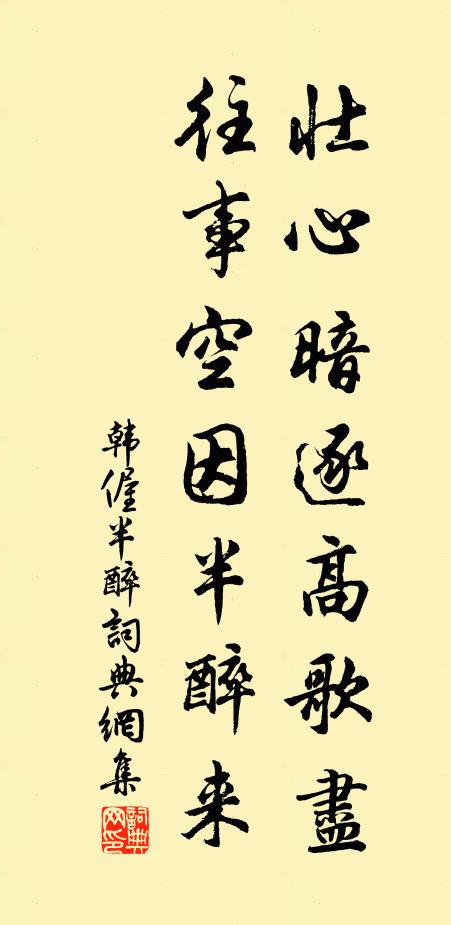 壯心暗逐高歌盡
往事空因半醉来
韩偓半醉詞典網集
詞典
网印